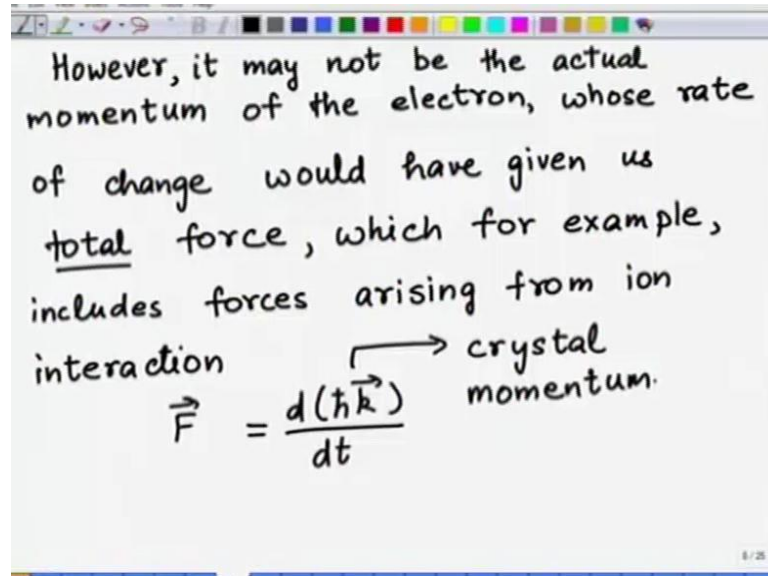 However, it may not be the actual
momentum of the electron, whose rate
of change would have given us
total force, which for example,
includes forces arising from ion
interaction → crystal
momentum.
F⃗ = d(ħk⃗)/dt
8/25